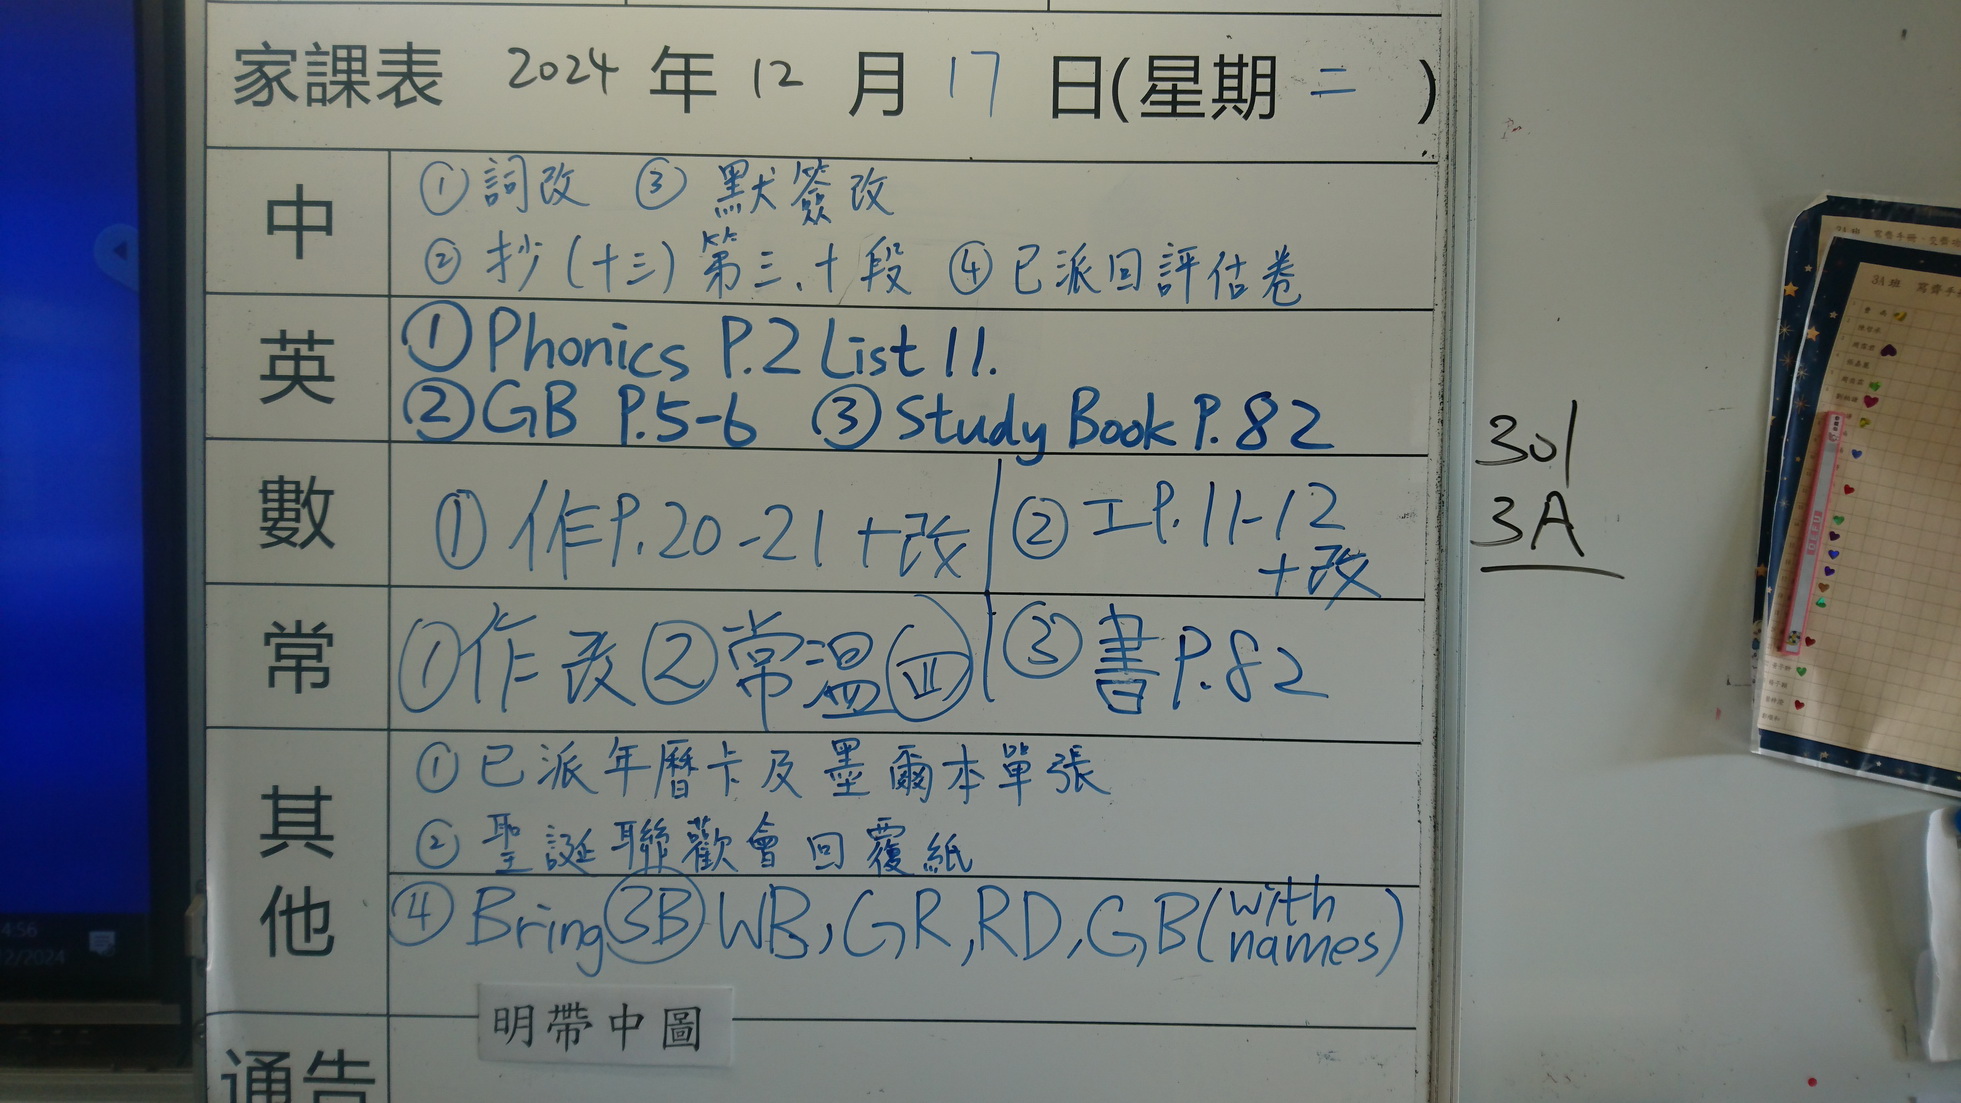 家課表 2024 年 12 月 17 日(星期 二 )
中
① 詞改 ③ 默簽改
② 抄(十三)第三、十段 ④ 已派回評估卷
英
① Phonics P.2 List 11.
② GB P.5-6 ③ Study Book P.82
數
① 作P.20-21+改 ② 工P.11-12
+改
常
① 作改 ② 常溫 ③ 書P.82
其他
① 已派年曆卡及墨爾本單張
② 聖誕聯歡會回覆紙
④ Bring 3B WB, GR, RD, GB (with names)
明帶中圖
通告
301
3A
3A班
4:56
12/2024